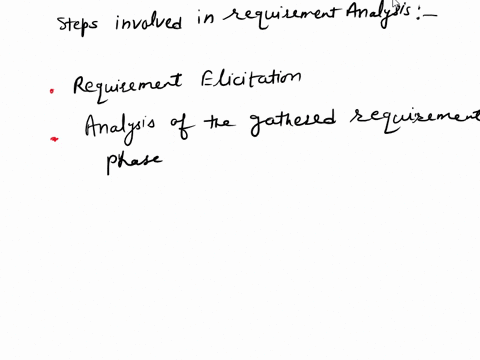 Steps involved in requirement Analysis :-
Requirement Elicitation
Analysis of the gathered requirement
phase